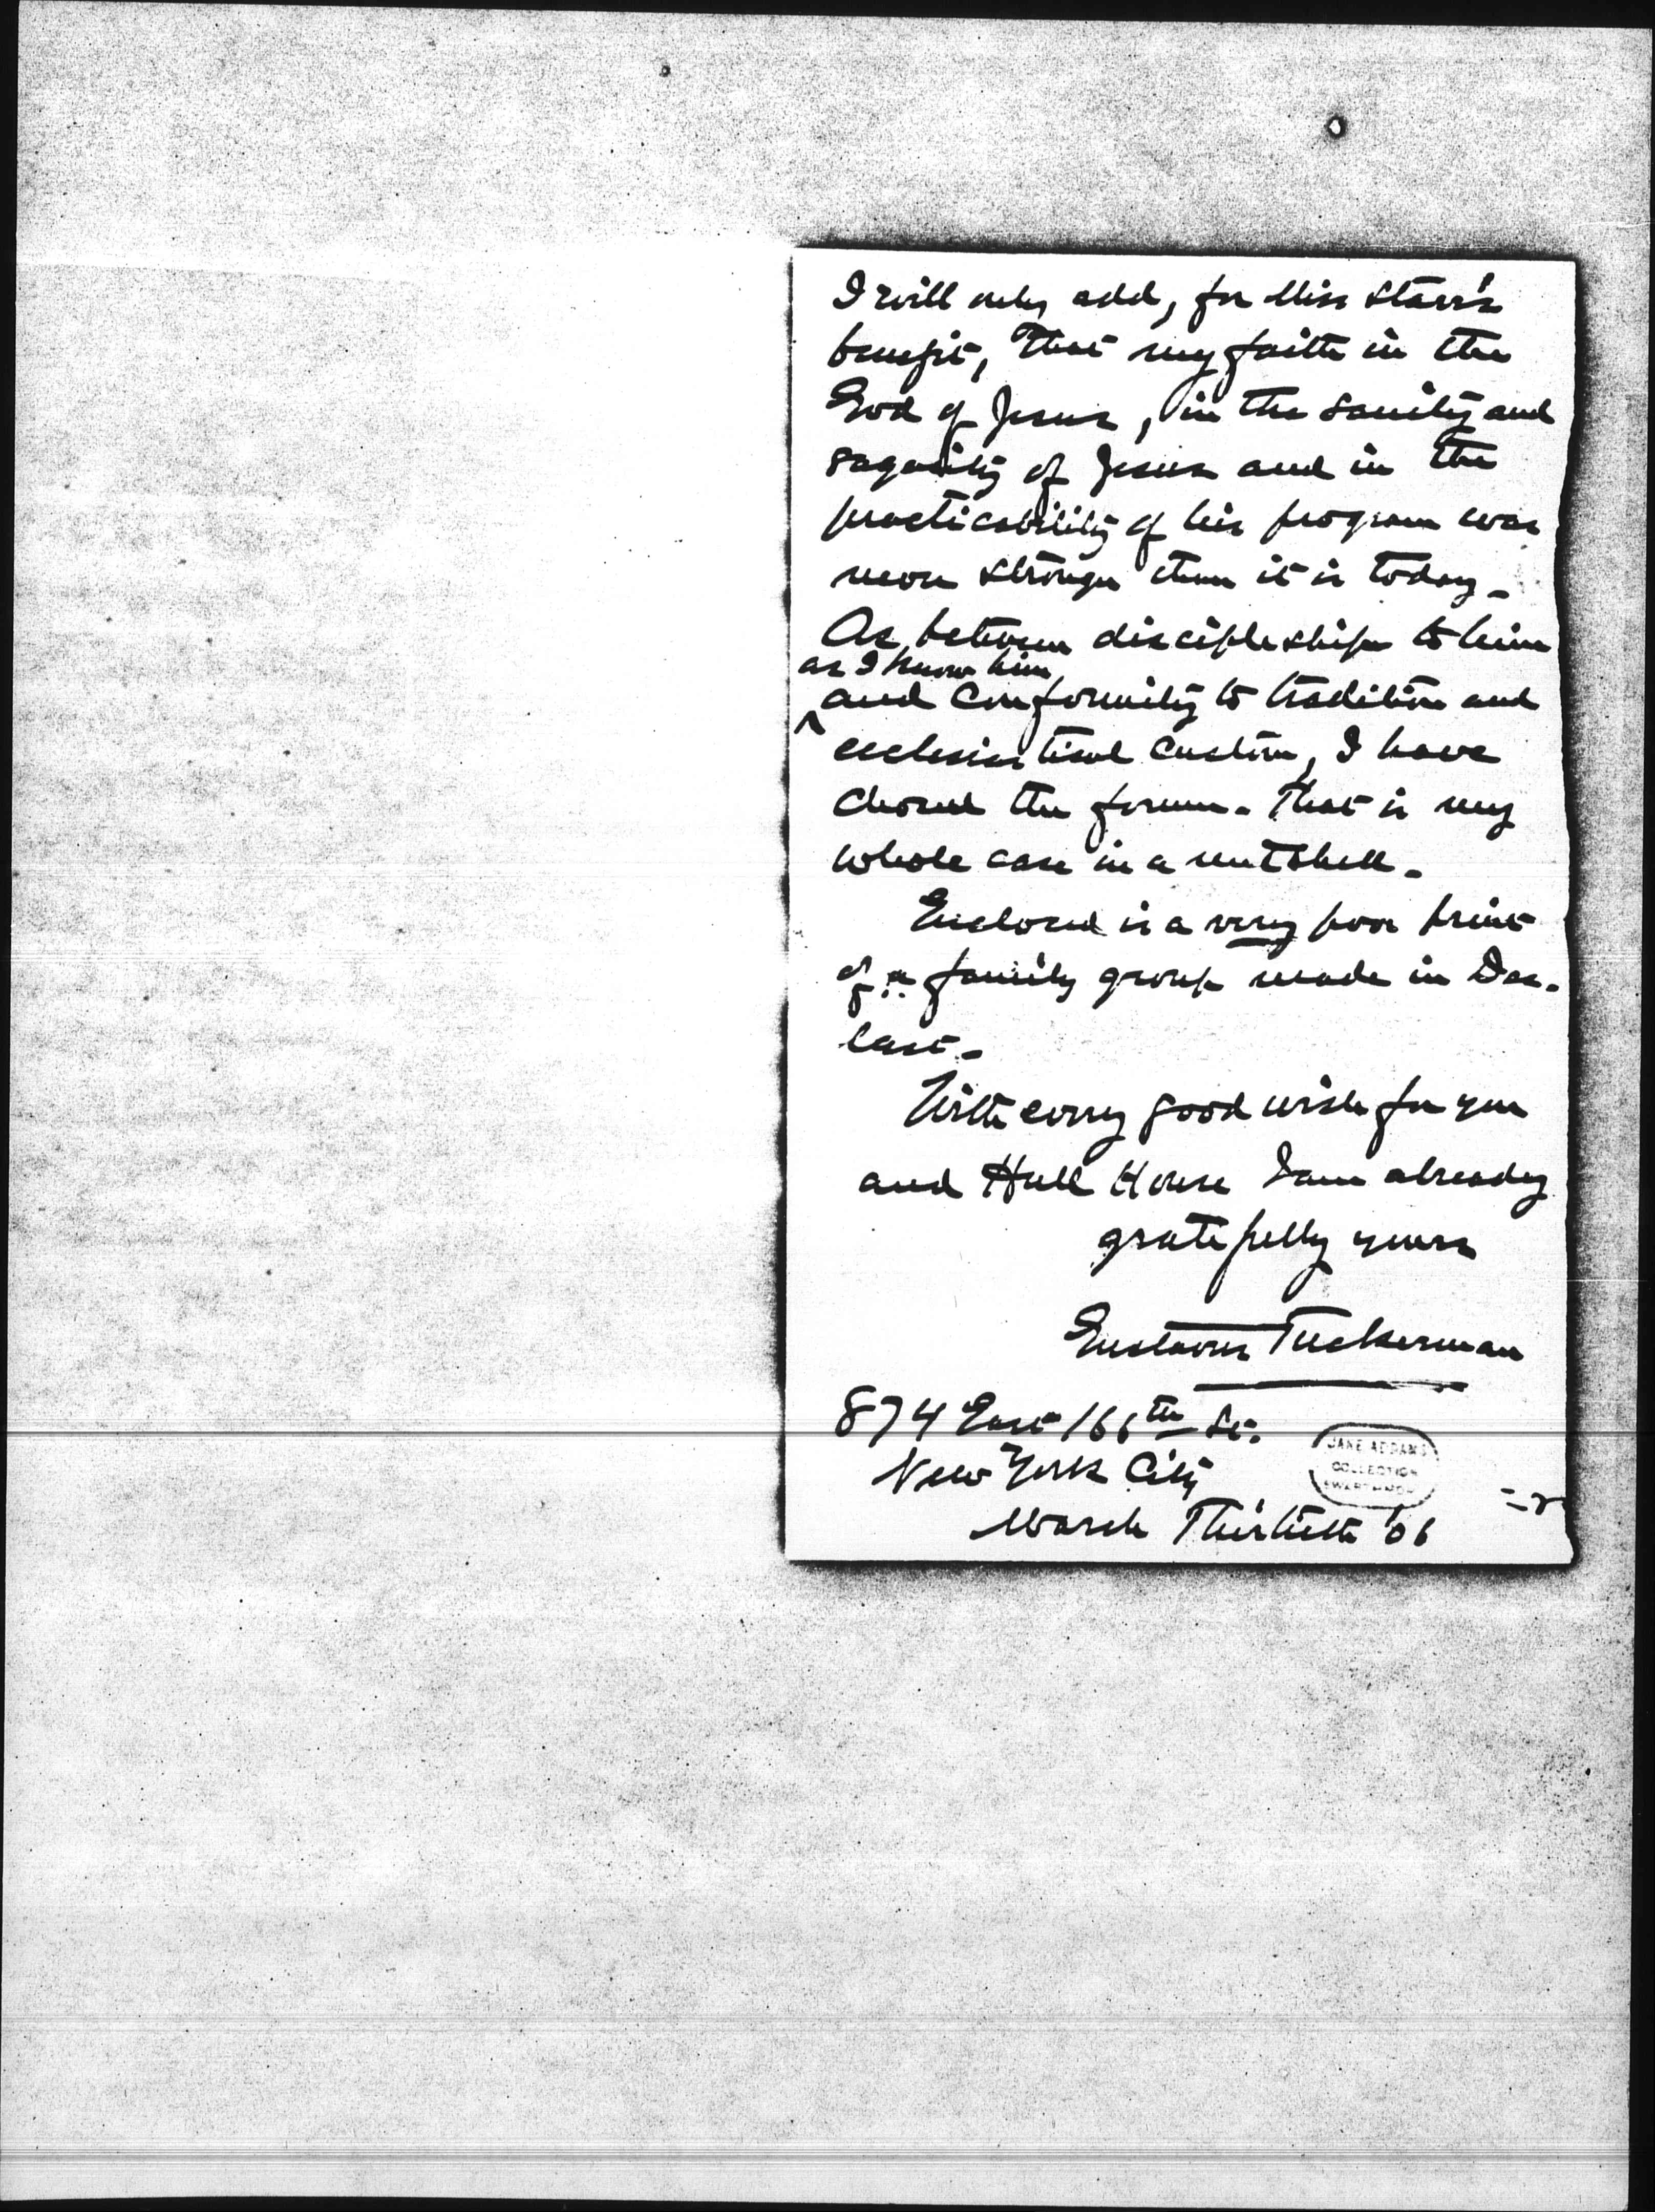 I will only add, for Miss Starr's
benefit, that my faith in the
God of Jesus, in the sanity and
sagacity of Jesus and in the
practicability of his program was
never stronger than it is today_
As between discipleship to him
as I know him
^ and conformity to tradition and
ecclesiastical custom, I have
chosen the former. That is my
whole case in a nutshell_
Enclosed is a very poor print
of a family group made in Dec.
last_
With every good wish for you
and Hull House I am already
gratefully yours
Gustavus Tuckerman
874 East 166th St.
New York City
JANE ADDAMS
COLLECTION
SWARTHMORE
March Thirtieth '06